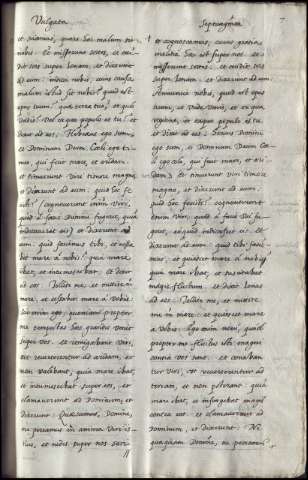 Vulgata
et sciamus, quare hoc malum sit
nobis. Et miserunt sortes, et ceci-
dit sors super Ionam, et dixerunt
ad eum: indica nobis, cuius causa
malum istud sit nobis? quod est
opus tuum? quae terra tua? et quò
vadis? Vel ex quo populo es tu? et
dixit ad eos: Hebraeus ego sum,
et Dominum Deum Coeli ego ti-
meo, qui fecit mare, et aridam.
et timuerunt viri timore magno,
et dixerunt ad eum: quid hoc fe-
cisti? cognoverunt enim viri,
quòd à facie Domini fugeret, quia
indicaverat eis) et dixerunt ad
eum: quid faciemus tibi, et cessa-
bit mare à nobis? quia mare
ibat, et intumescebat, et dixit
ad eos: Tollite me, et mittite in
mare, et cessabit mare à vobis:
scio enim ego, quoniam propter
me tempestas haec grandis venit
super vos. et remigabant viri,
ut reverterentur ad aridam, et
non valebant, quia mare ibat,
et intumescebat super eos, et
clamaverunt ad Dominum, et
dixerunt: Quaesumus, Domine,
ne pereamus in anima viri is-
tius, et ne des super nos san-
Septuaginta
7
et cognoscamus, cuius gratia
malitia haec est super nos. et
miserunt sortes, et cecidit sors
super Ionam: et dixerunt ad eum:
Annuncia nobis, quod est opus
tuum, et unde venis, et ex qua
regione, et ex quo populo es tu.
et dixit ad eos: Servus Domini
ego sum, et Dominum Deum Coe-
li ego colo, qui fecit mare, et ari-
dam. et timuerunt viri timore
magno, et dixerunt ad eum:
quid hoc fecisti? cognoverunt
enim viri, quòd à facie Dei fu-
geret, et quod indicasset eis. et
dixerunt ad eum: quid tibi facie-
mus, et quiescet mare à nobis?
quia mare ibat, et suscitabat
magis fluctum. et dixit Ionas
ad eos: Tollite me, et mittite
me in mare. et quiescet mare
à vobis: Ego enim novi, quòd
propter me fluctus iste magnus
contra vos sunt. et conabantur
viri, ut reverterentur ad
terram, et non poterant: quia
mare ibat, et insurgebat magis
contra eos. et clamaverunt ad
Dominum, et dixerunt: Ne-
quaquam Domine, ne pereamus